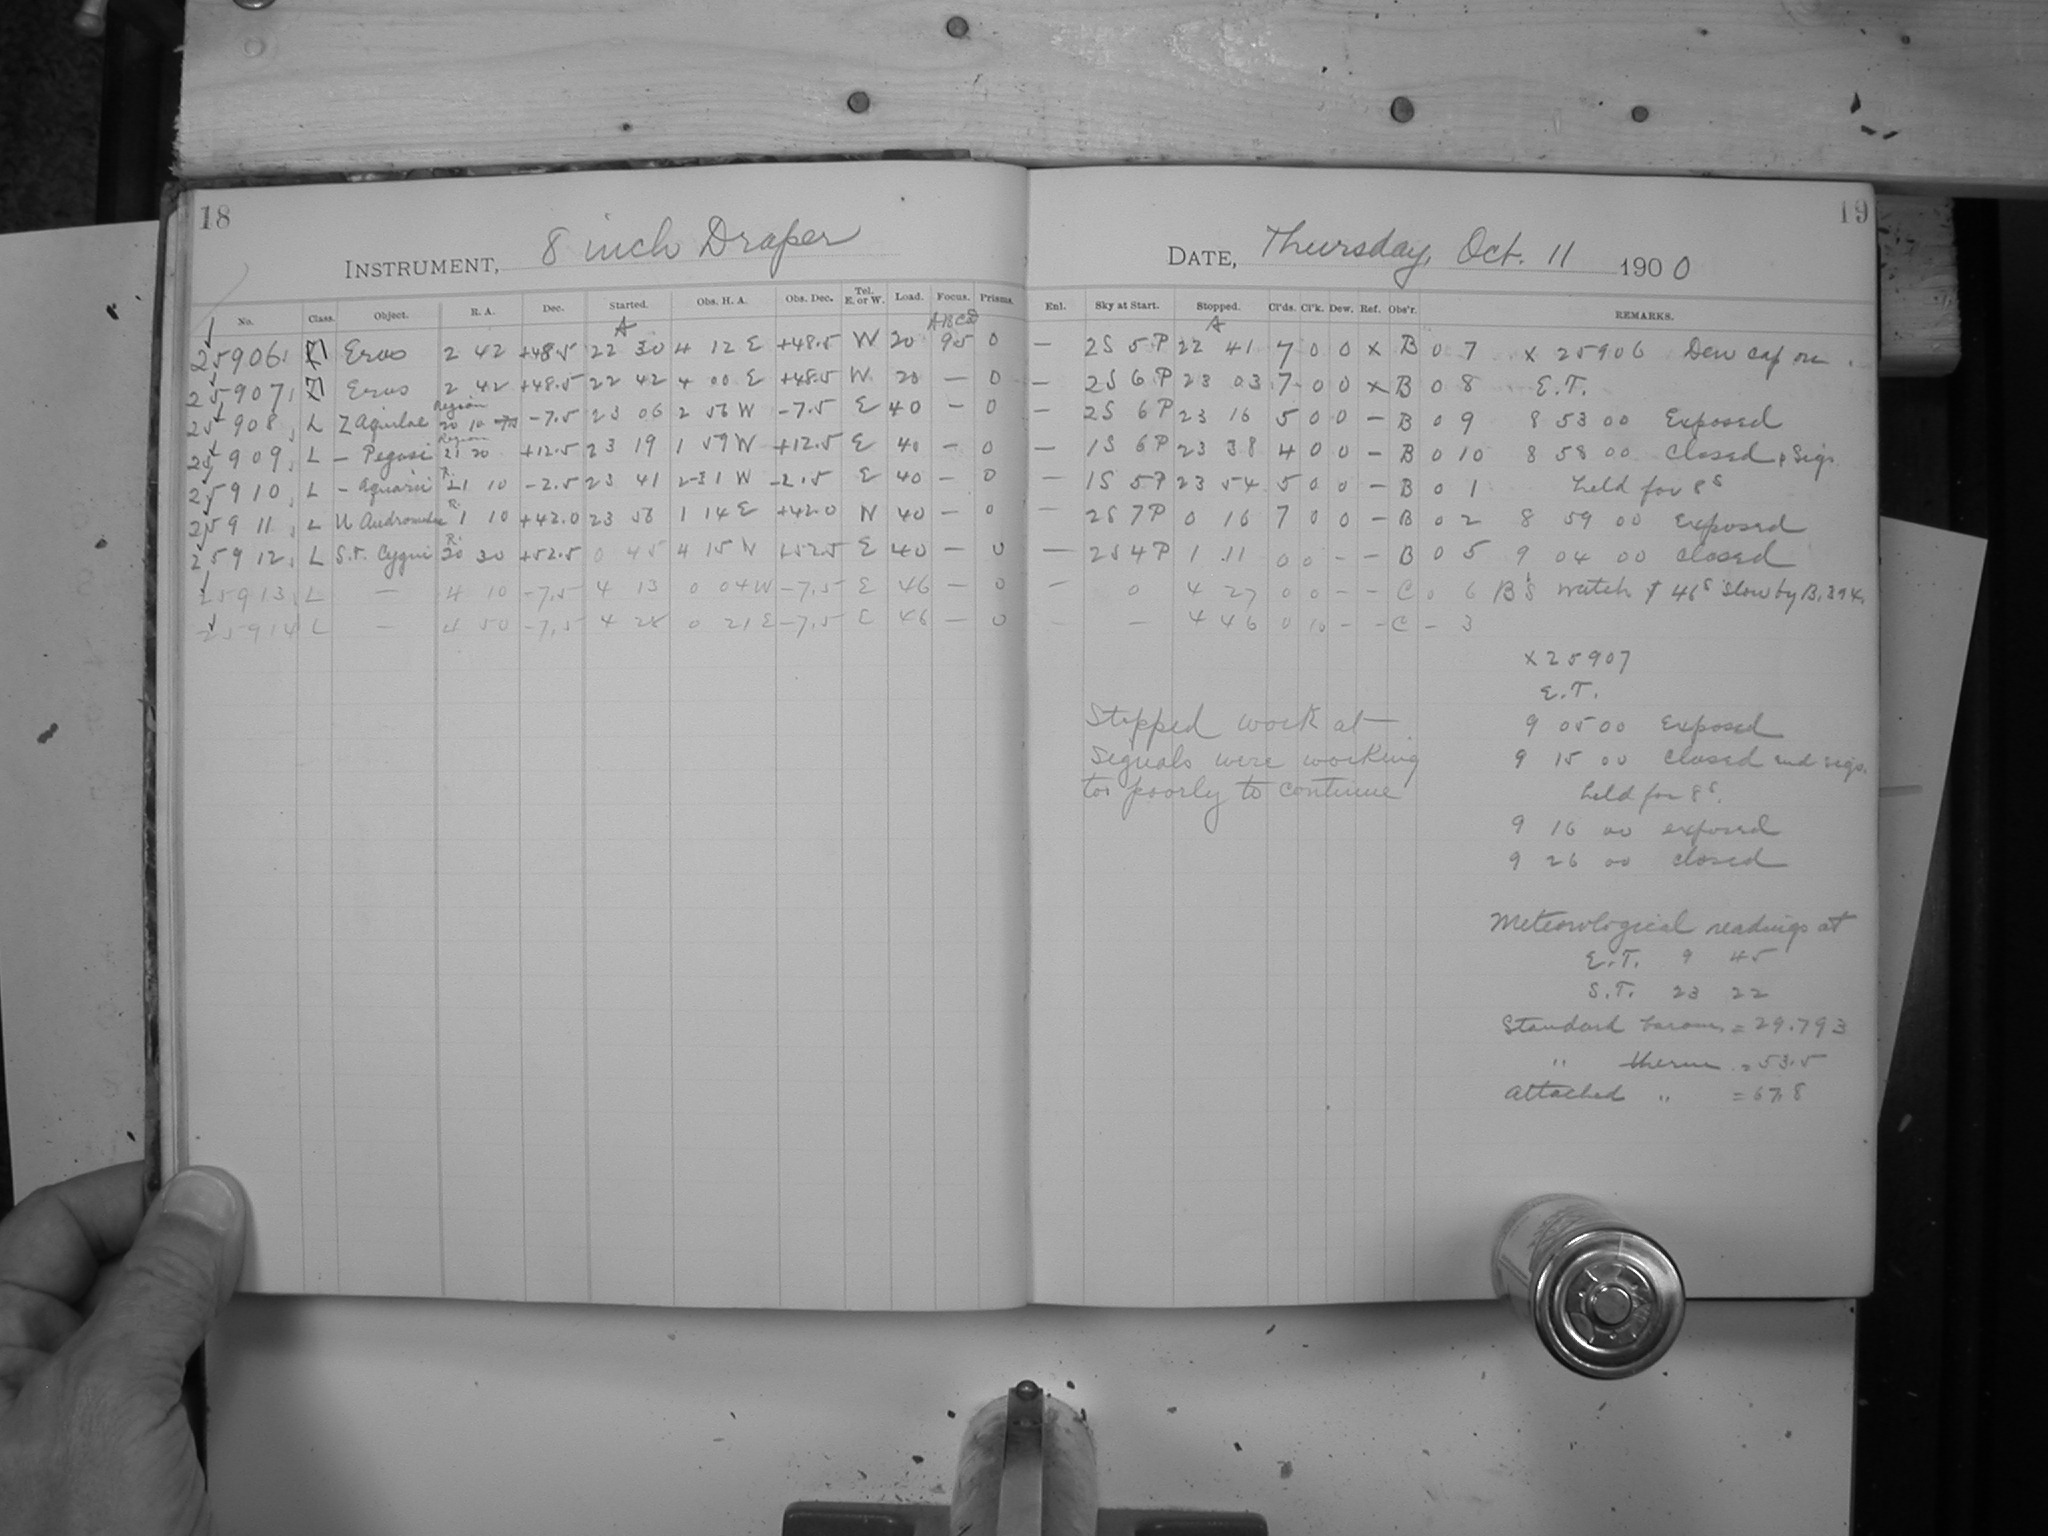 18
INSTRUMENT, 8 inch Draper
No. Class. Object. R. A. Dec. Started. Obs. H. A. Obs. Dec. Tel. E. or W. Load. Focus. Prisms.
A ABCD
25906, Eros 2 42 +48.5 22 30 4 12 E +48.5 W 20 95 0
25907, Eros 2 42 +48.5 22 42 4 00 E +48.5 W 20 — 0
25908, L Z Aquilae Region 20 10 -7.5 23 06 2 56 W -7.5 E 40 — 0
25909, L — Pegasi Region 21 20 +12.5 23 19 1 59 W +12.5 E 40 — 0
25910, L — Aquarii R. 21 10 -2.5 23 41 2 31 W -2.5 E 40 — 0
25911, L U Andromedae R. 1 10 +42.0 23 56 1 14 E +42.0 W 40 — 0
25912, L S.T. Cygni R. 20 30 +52.5 0 45 4 15 W +52.5 E 40 — 0
25913, L — 4 10 -7.5 4 13 0 04 W -7.5 E 46 — 0
25914 L — 4 50 -7.5 4 28 0 21 E -7.5 E 46 — 0
19
DATE, Thursday, Oct. 11 1900
Enl. Sky at Start. Stopped. Cl'ds. Cl'k. Dew. Ref. Obs'r. REMARKS.
A
— 2S 5P 22 41 7 0 0 x B 0 7 x 25906 Dew cap on.
— 2S 6P 23 03 7 0 0 x B 0 8 E.T.
— 2S 6P 23 16 5 0 0 — B 0 9 8 53 00 Exposed
— 1S 6P 23 38 4 0 0 — B 0 10 8 58 00 Closed & Sigs.
— 1S 5P 23 54 5 0 0 — B 0 1 held for 8s
— 2S 7P 0 16 7 0 0 — B 0 2 8 59 00 Exposed
— 2S 4P 1 11 0 0 — — B 0 5 9 04 00 Closed
— 0 4 27 0 0 — — C 0 6 B's watch 46s slow by B. 394.
— — 4 46 0 10 — — C — 3
x 25907
E.T.
Stopped work at —
Signals were working
too poorly to continue
9 05 00 Exposed
9 15 00 Closed and sigs.
held for 8s.
9 16 00 exposed
9 26 00 closed
Meteorological readings at
E.T. 9 45
S.T. 23 22
Standard barom. = 29.793
" therm = 53.5
Attached " = 67.8